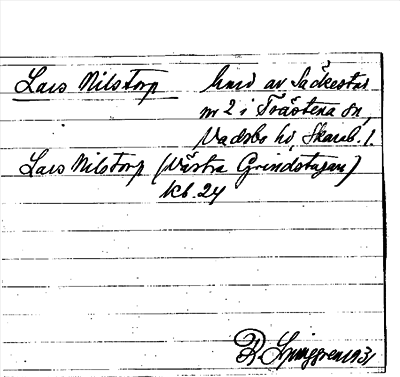 Lars Nilstorp hmd av Säckestad
nr 2 i Trästena sn,
Vadsbo hd, Skarab. l.
Lars Nilstorp (Västra Grindstugan)
kb. 24
R Ljunggren 1931